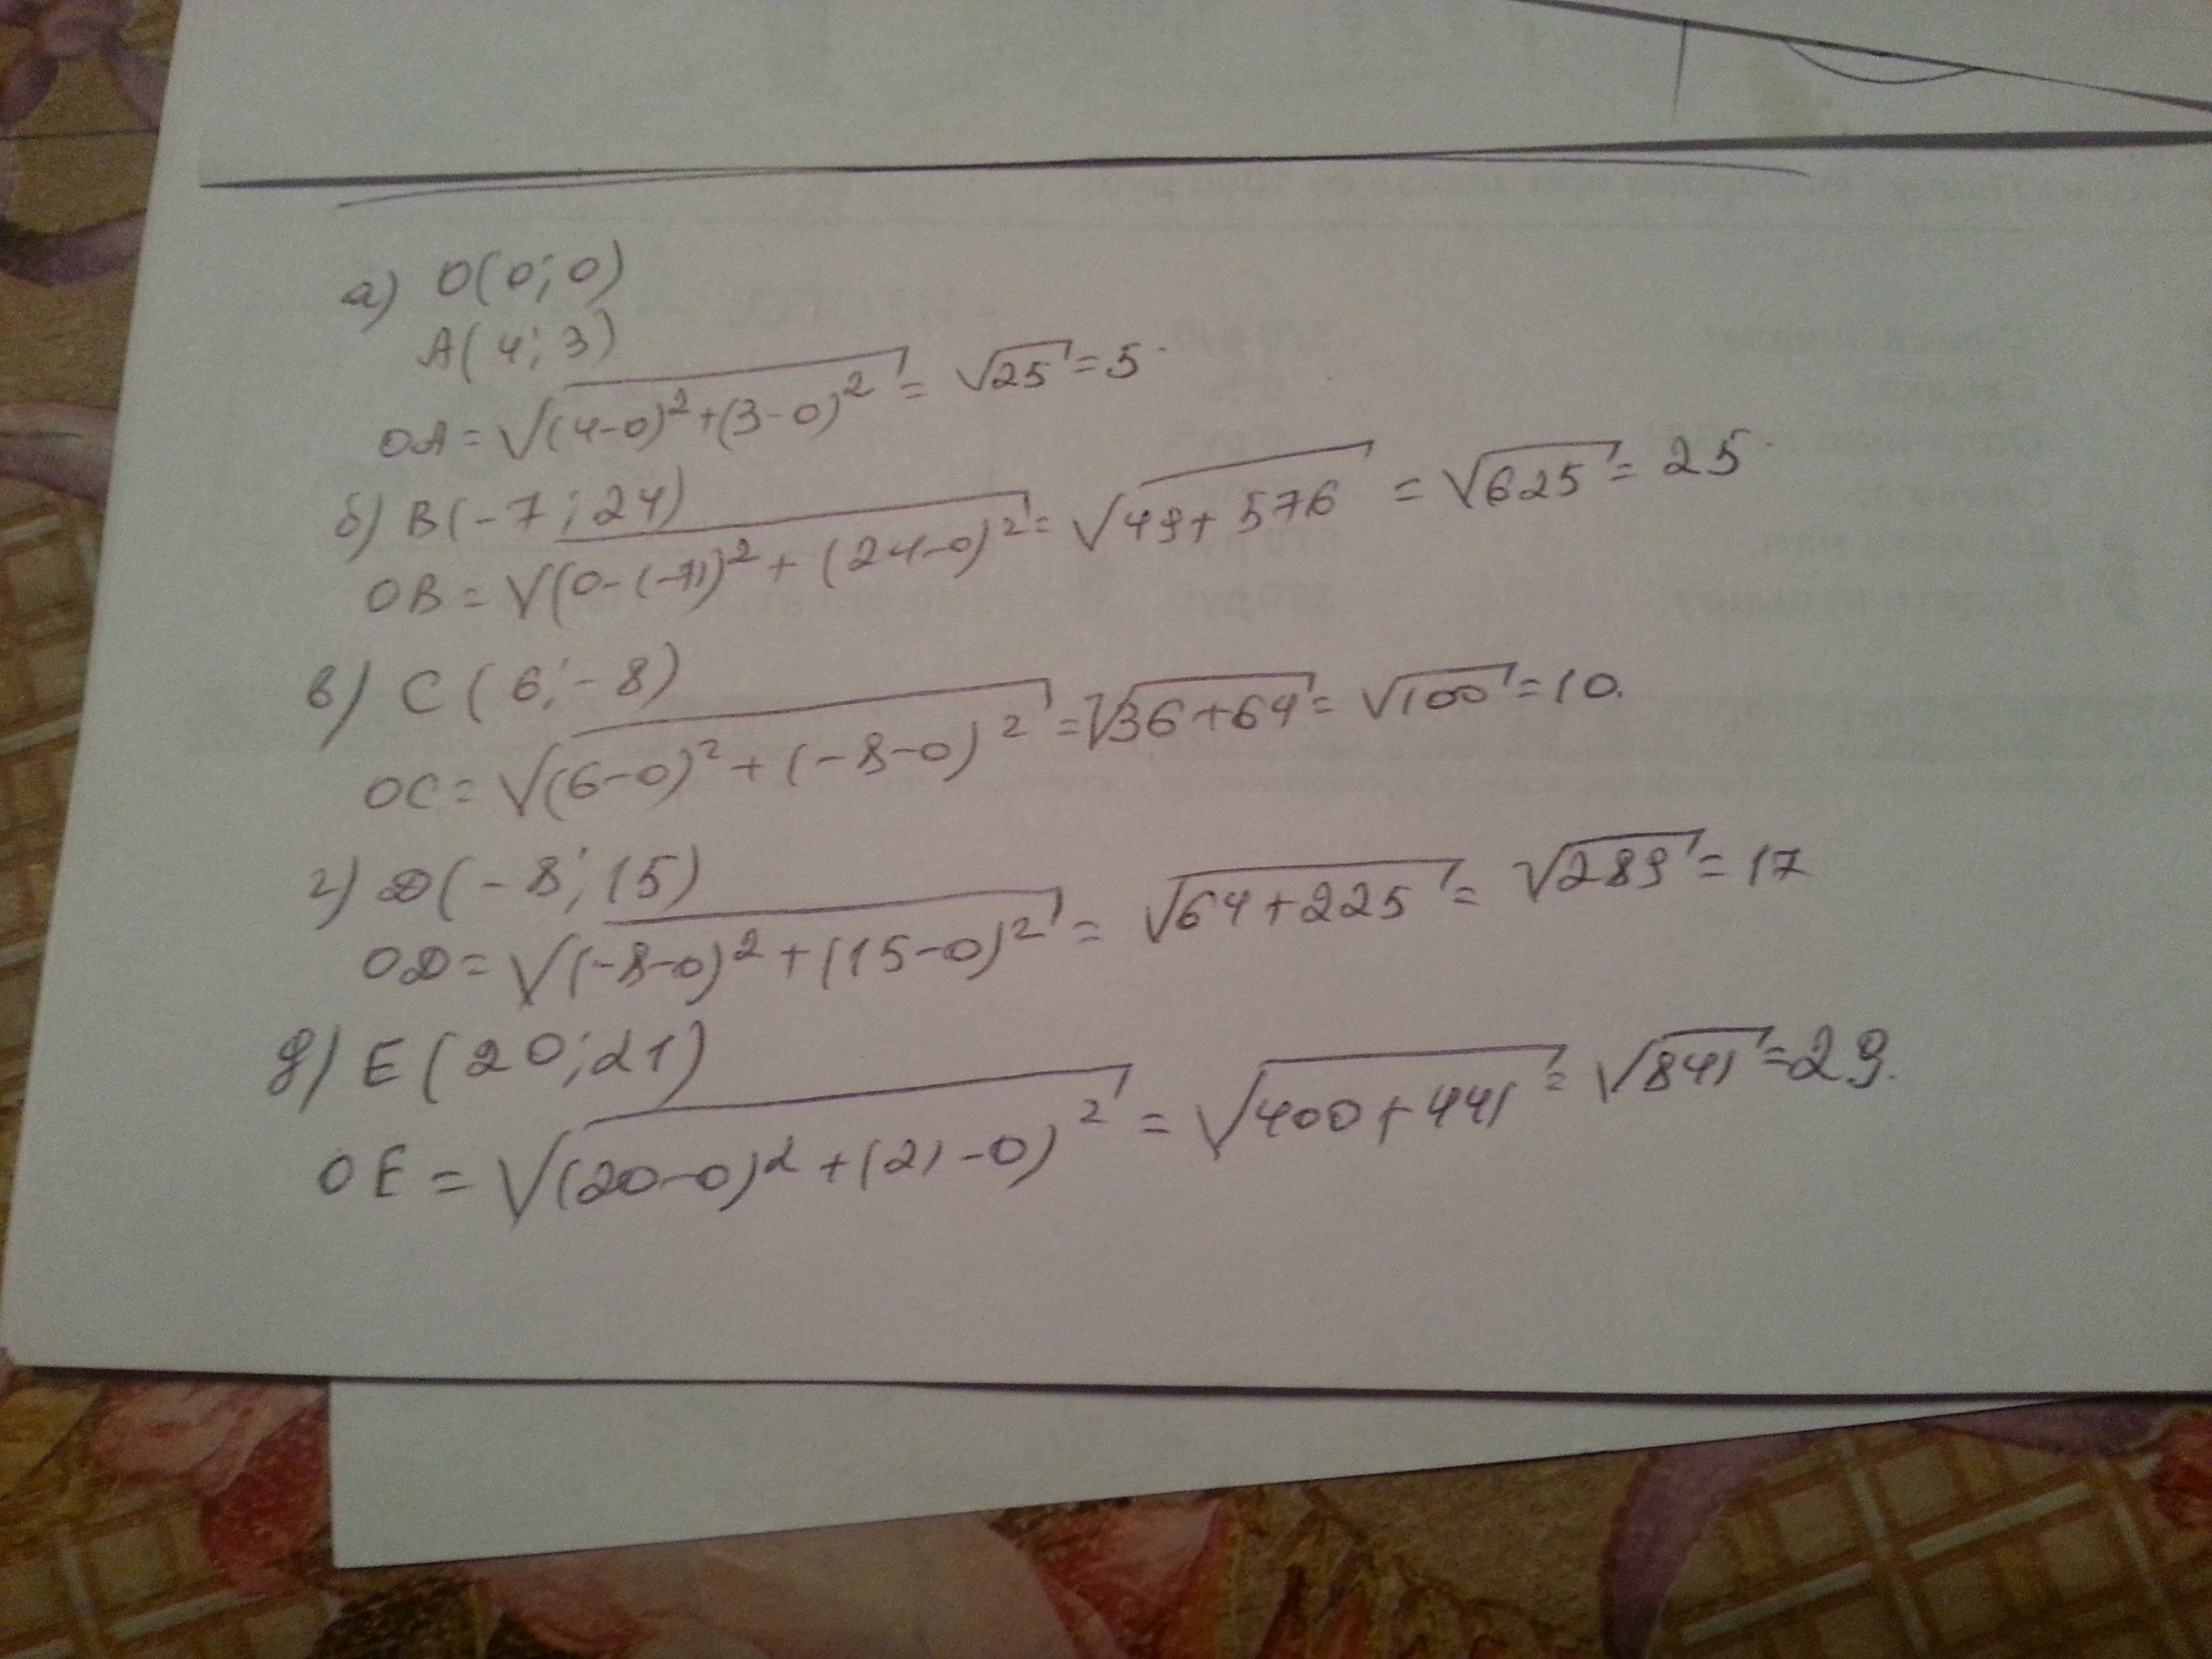 а) O(0;0)
A(4;3)
OA=√(4-0)²+(3-0)² = √25=5.
б) B(-7;24)
OB=√(0-(-7))²+(24-0)²=√49+576 =√625=25.
в) C(6;-8)
OC=√(6-0)²+(-8-0)²=√36+64=√100=10.
г) D(-8;15)
OD=√(-8-0)²+(15-0)²=√64+225=√289=17
д) E(20;21)
OE=√(20-0)²+(21-0)²=√400+441=√841=29.